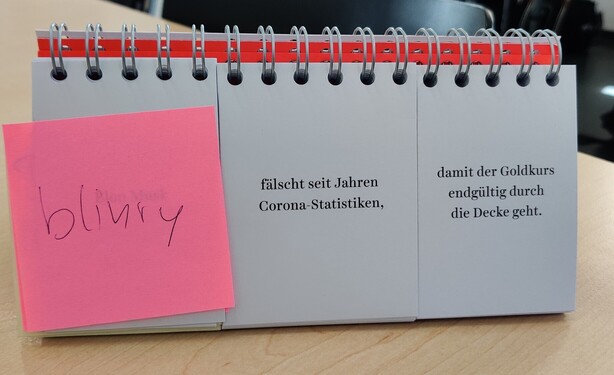 blinry
fälscht seit Jahren
Corona-Statistiken,
damit der Goldkurs
endgültig durch
die Decke geht.